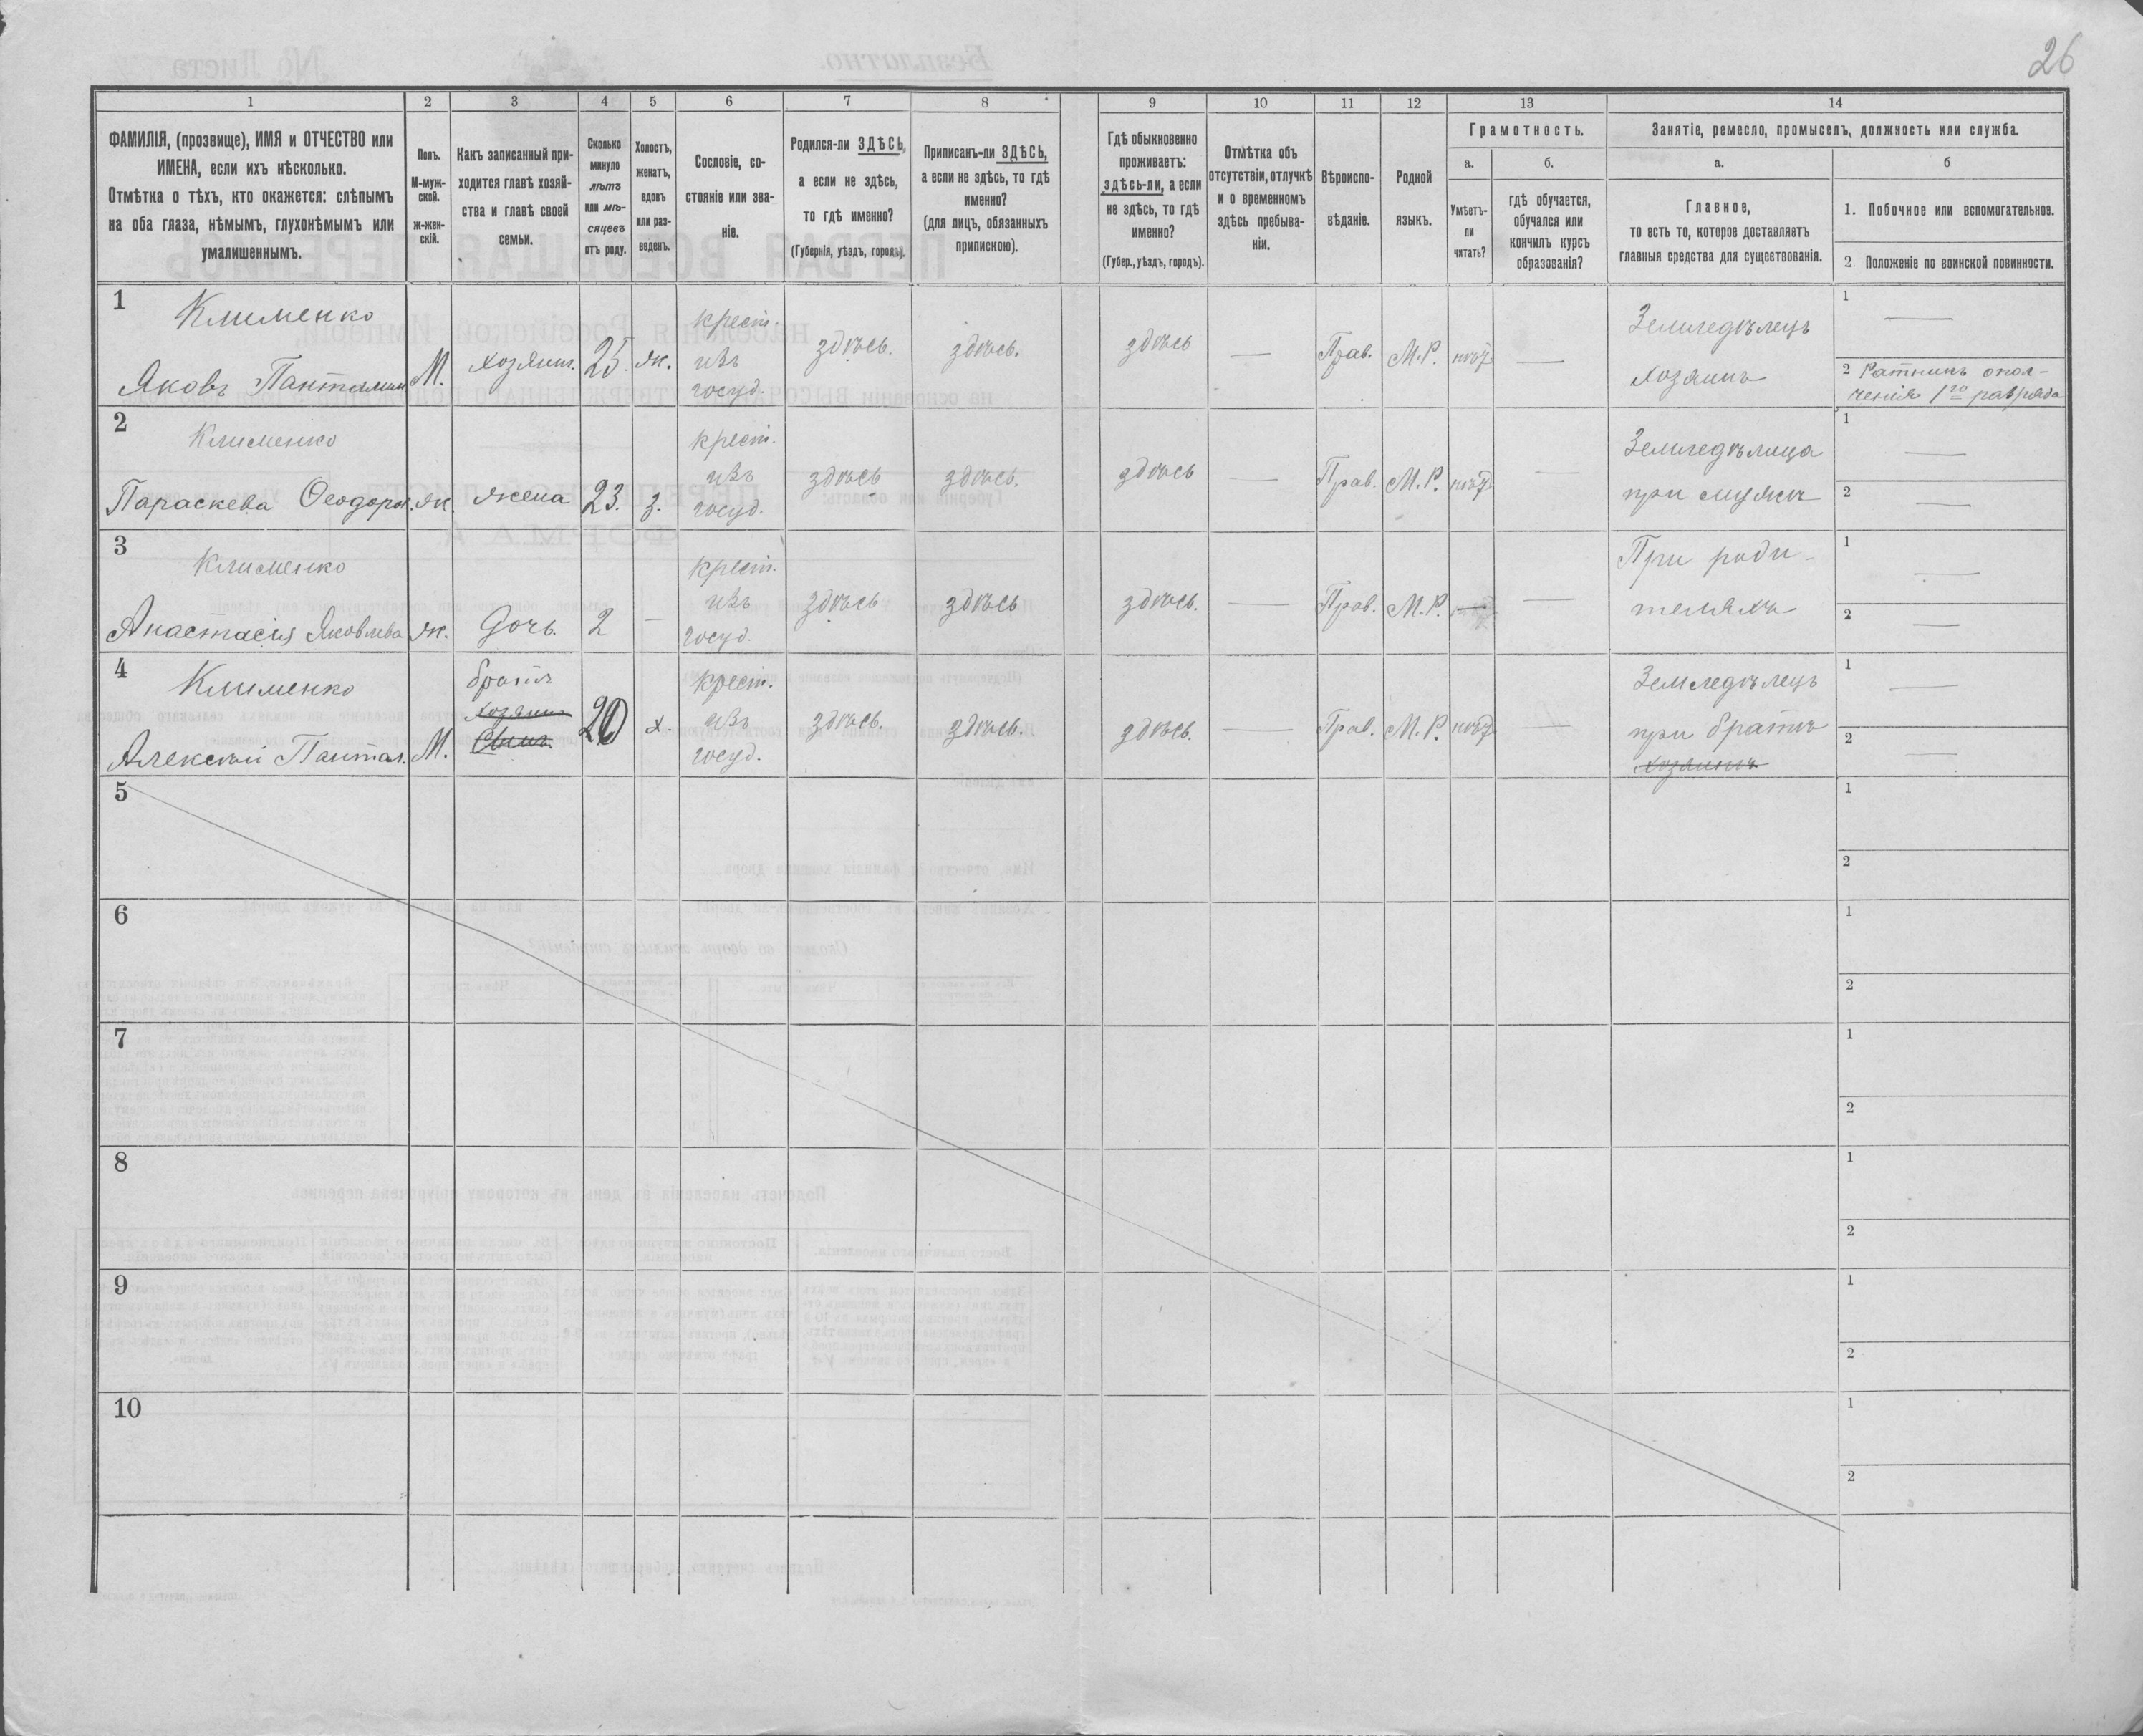 26
1 2 3 4 5 6 7 8 9 10 11 12 13 14
ФАМИЛІЯ, (прозвище), ИМЯ и ОТЧЕСТВО или
ИМЕНА, если ихъ нѣсколько.
Отмѣтка о тѣхъ, кто окажется: слѣпымъ
на оба глаза, нѣмымъ, глухонѣмымъ или
умалишеннымъ.
Полъ.
М-муж-
ской.
ж-жен-
скій.
Какъ записанный при-
ходится главѣ хозяй-
ства и главѣ своей
семьи.
Сколько
минуло
лѣтъ
или мѣ-
сяцевъ
отъ роду.
Холостъ,
женатъ,
вдовъ
или раз-
веденъ.
Сословіе, со-
стояніе или зва-
ніе.
Родился-ли ЗДѢСЬ,
а если не здѣсь,
то гдѣ именно?
(Губернія, уѣздъ, городъ).
Приписанъ-ли ЗДѢСЬ,
а если не здѣсь, то гдѣ
именно?
(для лицъ, обязанныхъ
припискою).
Гдѣ обыкновенно
проживаетъ:
здѣсь-ли, а если
не здѣсь, то гдѣ
именно?
(Губер., уѣздъ, городъ).
Отмѣтка объ
отсутствіи, отлучкѣ
и о временномъ
здѣсь пребыва-
ніи.
Вѣроиспо-
вѣданіе.
Родной
языкъ.
Грамотность.
а.
Умѣетъ-
ли
читать?
б.
гдѣ обучается,
обучался или
кончилъ курсъ
образованія?
Занятіе, ремесло, промыселъ, должность или служба.
а.
Главное,
то есть то, которое доставляетъ
главныя средства для существованія.
б
1. Побочное или вспомогательное.
2. Положеніе по воинской повинности.
1
Клименко
Яковъ Пантелим
М.
хозяин.
25.
ж.
крест.
изъ
госуд.
здѣсь.
здѣсь.
здѣсь
—
Прав.
М.Р.
нѣтъ
—
Земледѣлецъ
хозяинъ
1 —
2 Ратникъ опол-
ченія 1го разряда
2
Клименко
Параскева Ѳеодоро.
ж.
жена
23.
з.
крест.
изъ
госуд.
здѣсь
здѣсь.
здѣсь
—
Прав.
М.Р.
нѣтъ
—
Земледѣлица
при мужѣ
1 —
2 —
3
Клименко
Анастасія Яковлева
ж.
Дочь.
2
—
крест.
изъ
госуд.
здѣсь
здѣсь
здѣсь.
—
Прав.
М.Р.
—
—
При роди-
теляхъ
1 —
2 —
4
Клименко
Алексѣй Пантел.
М.
братъ
хозяин
Сынъ.
20
х.
крест.
изъ
госуд.
здѣсь.
здѣсь.
здѣсь.
—
Прав.
М.Р.
нѣтъ
Земледѣлецъ
при братѣ
хозяинѣ
1 —
2 —
5
1
2
6
1
2
7
1
2
8
1
2
9
1
2
10
1
2